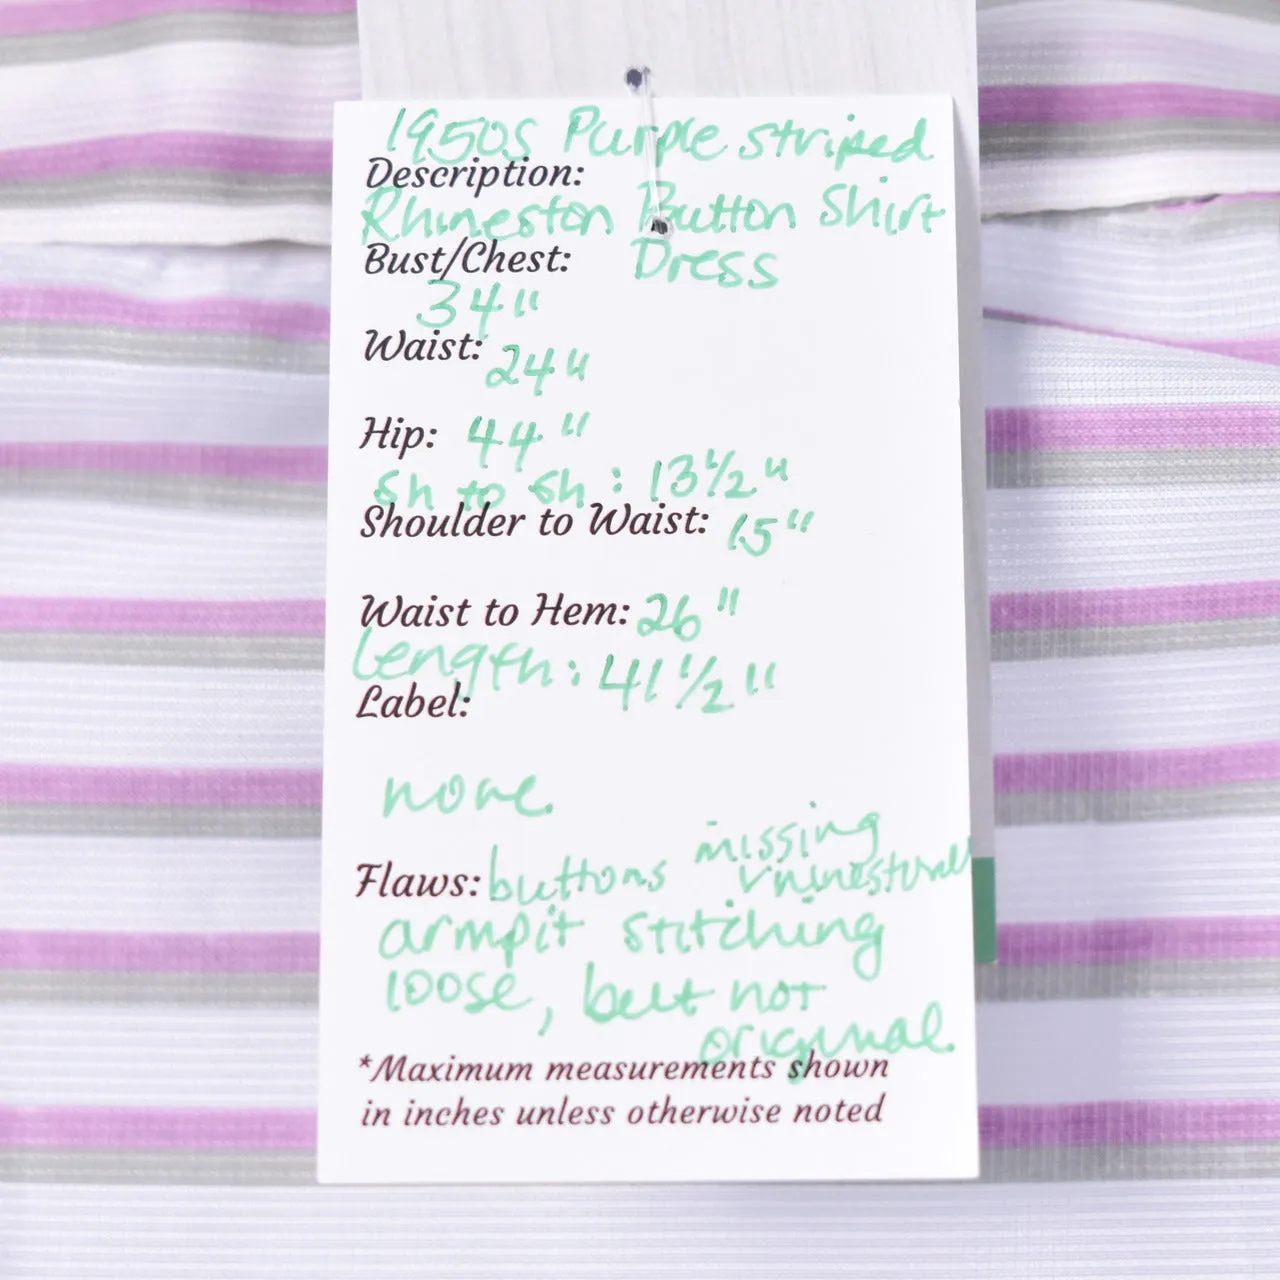 1950s Purple striped
Description:
Rhineston Button Shirt
Bust/Chest: Dress
34"
Waist: 24"
Hip: 44"
Sh to Sh: 13 1/2"
Shoulder to Waist: 15"
Waist to Hem: 26"
Length: 41 1/2"
Label:
none
missing
Flaws: buttons
armpit stitching
loose, belt not
original.
*Maximum measurements shown
in inches unless otherwise noted